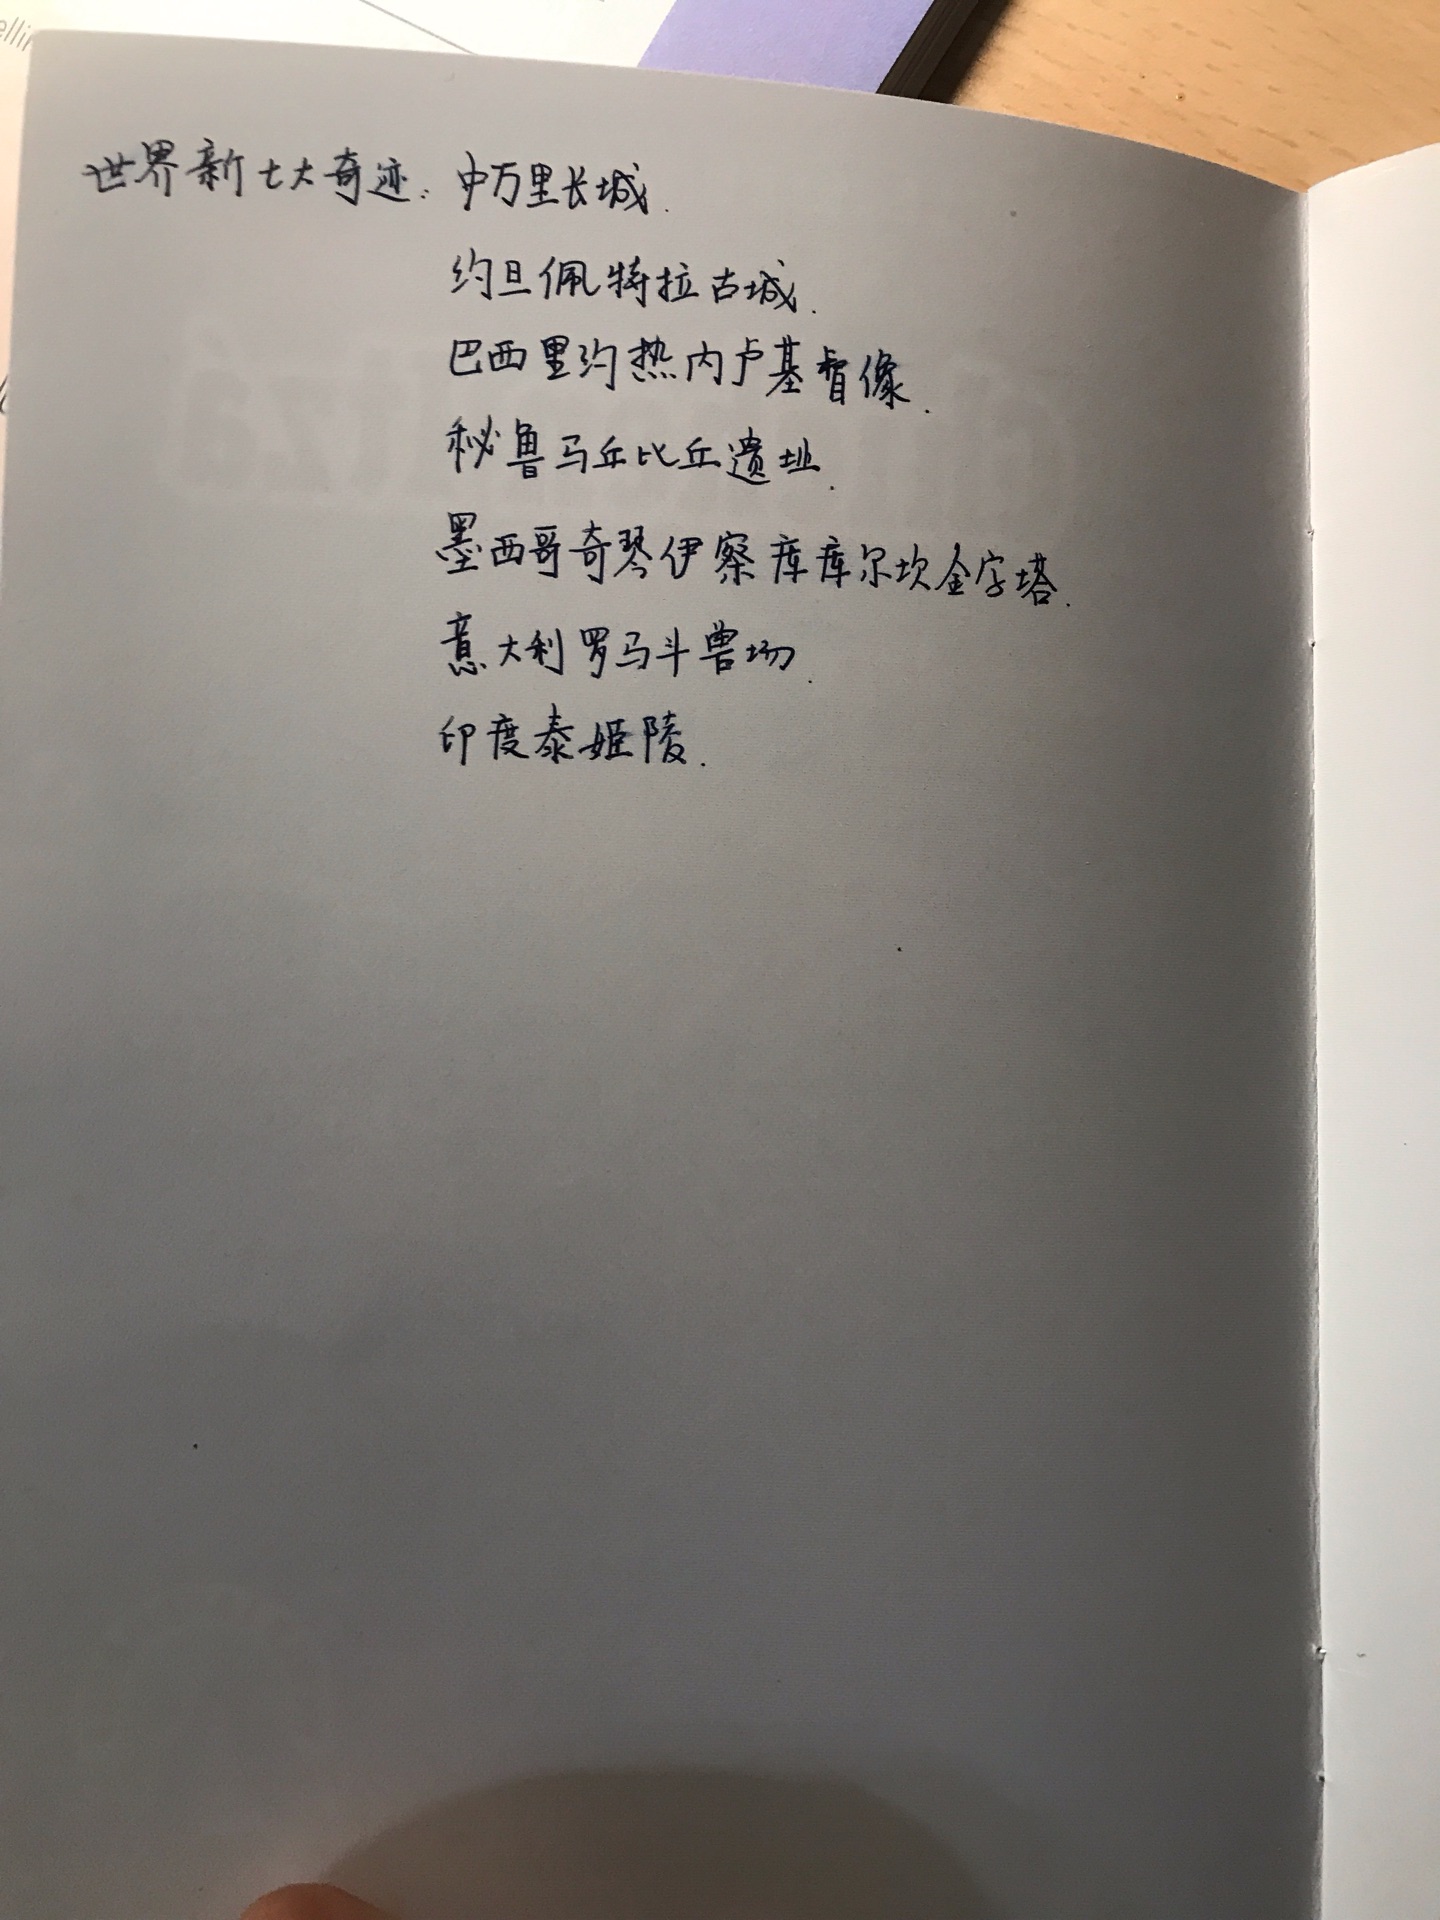 ellin
世界新七大奇迹:中万里长城.
约旦佩特拉古城.
巴西里约热内卢基督像.
秘鲁马丘比丘遗址.
墨西哥奇琴伊察库库尔坎金字塔.
意大利罗马斗兽场.
印度泰姬陵.